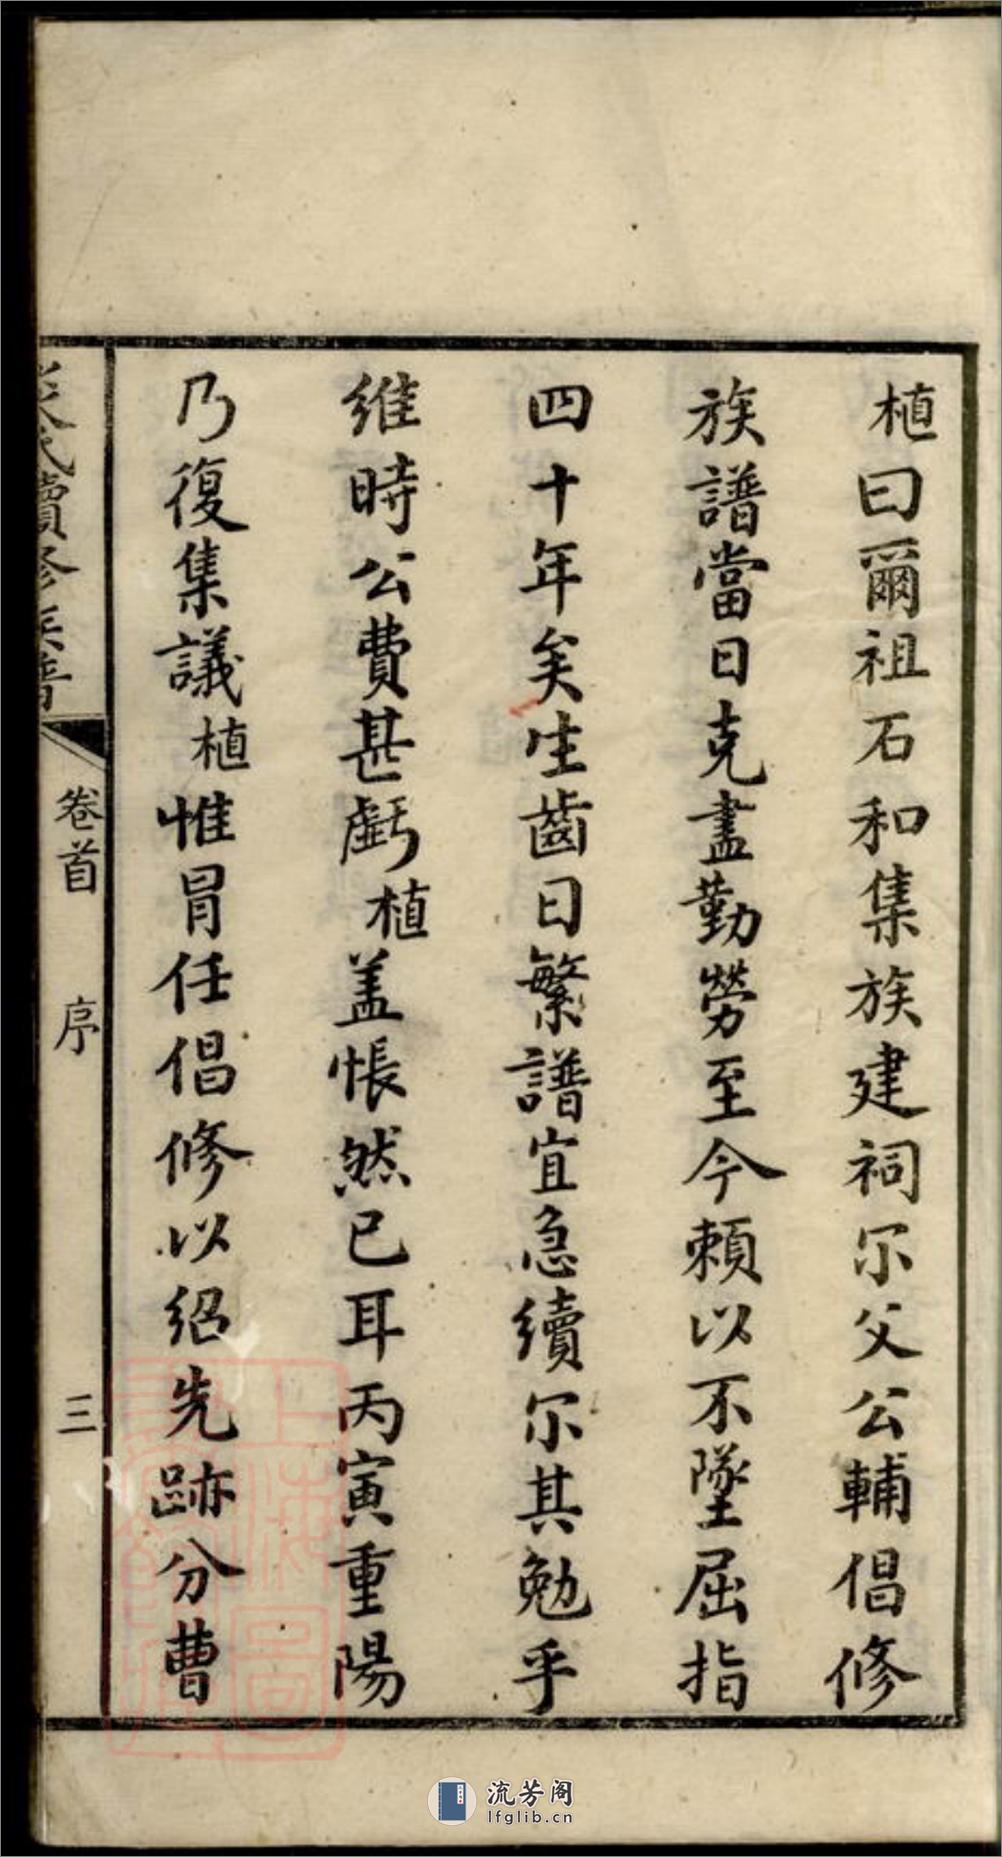 植曰爾祖石和集族建祠尔父公輔倡修
族譜當日克盡勤勞至今賴以不墜屈指
四十年矣生齒日繁譜宜急續尔其勉乎
維時公費甚虧植盖悵然已耳丙寅重陽
乃復集議植惟冐任倡修以紹先跡分曹
氏續修族譜
卷首 序 三
上海圖
流芳阁
lfglib.cn